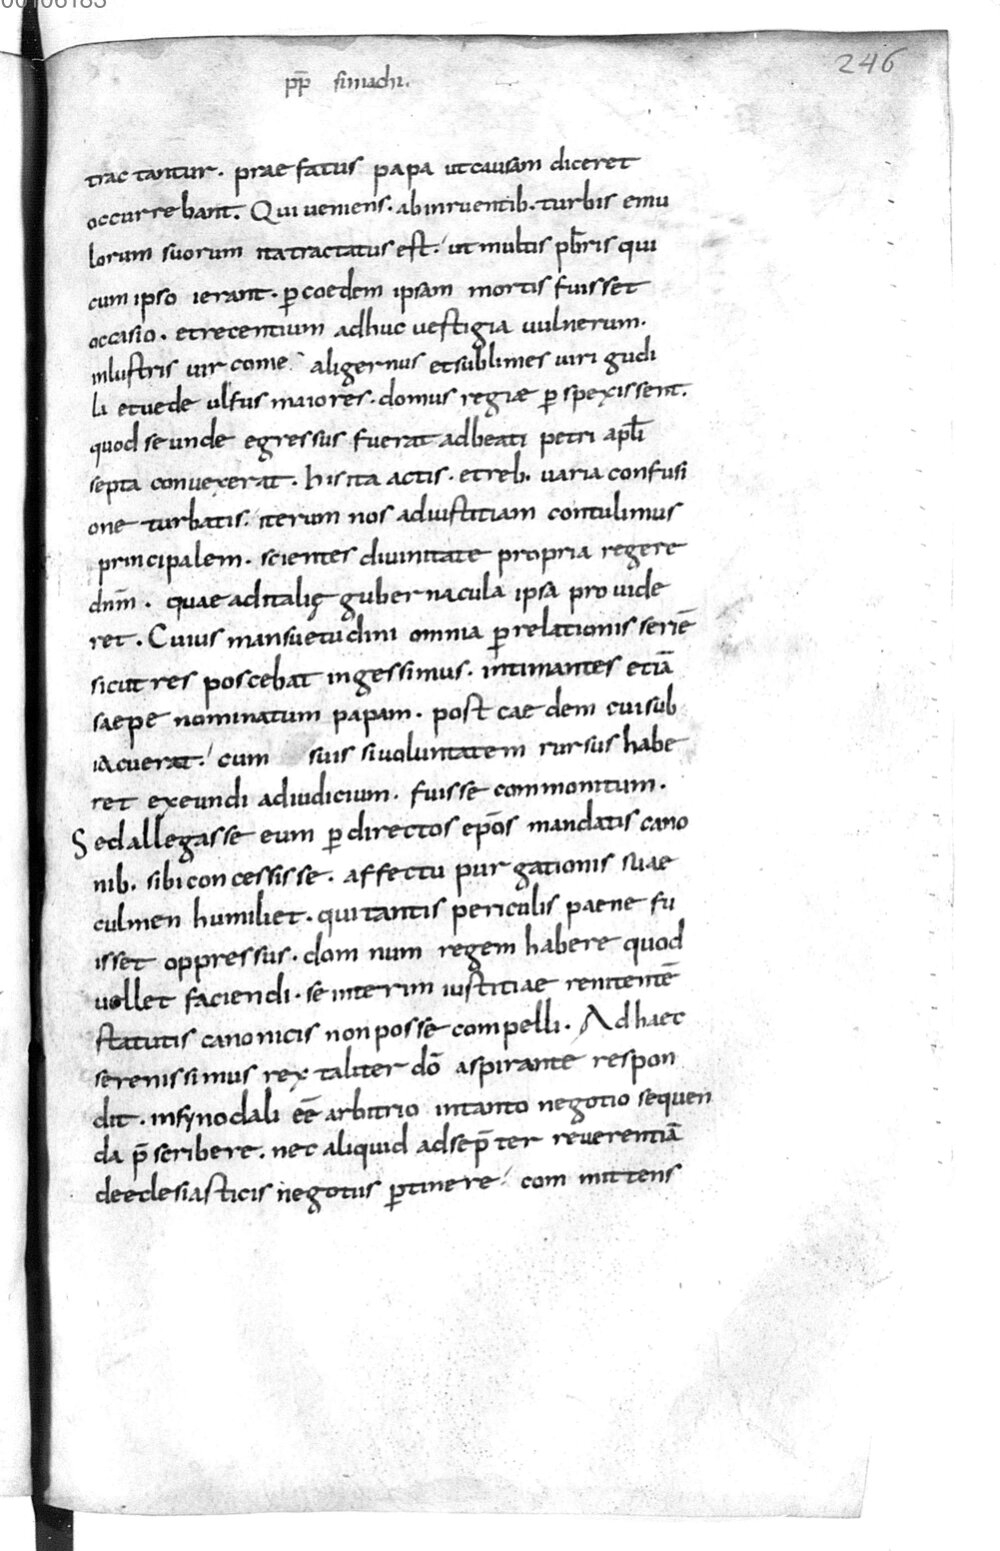 00106183
246
pp̄ simachi.
tractantur. praefatus papa ut causam diceret
occurrebant. Qui ueniens. ab inruentib. turbis emu
lorum suorum ita tractatus est. ut multis pb̄ris qui
cum ipso ierant. ꝑ coedem ipsam mortis fuisset
occasio. et recentium adhuc uestigia uulnerum.
inlustris uir comes aligernus et sublimes uiri gudi
li et uede ulfus maiores. domus regiæ ꝑspexissent.
quod se unde egressus fuerat ad beati petri apl̄i
septa conuexerat. his ita actis. et reb. uaria confusi
one turbatis. iterum nos ad iustitiam contulimus
principalem. scientes diuinitate propria regere
dnm̄. quae ad italię gubernacula ipsa prouide
ret. Cuius mansuetudini omnia ꝑ relationis seriē
sicut res poscebat ingessimus. intimantes etiā
saepe nominatum papam. post caedem cui sub
iacuerat. cum suis si uoluntatem rursus habe
ret exeundi ad iudicium. fuisse commonitum.
Sed allegasse eum ꝑ directos ep̄os mandatis cano
nib. sibi concessisse. affectu purgationis suae
culmen humiliet. qui tantis periculis paene fu
isset oppressus. domnum regem habere quod
uellet faciendi. se interim iustitiae renitentē
statutis canonicis non posse compelli. Ad haec
serenissimus rex taliter dō aspirante respon
dit. in synodali eē arbitrio in tanto negotio sequen
da p̄scribere. nec aliquid ad se p̄ter reuerentiā
de eclesiasticis negotiis ꝑtinere. committens